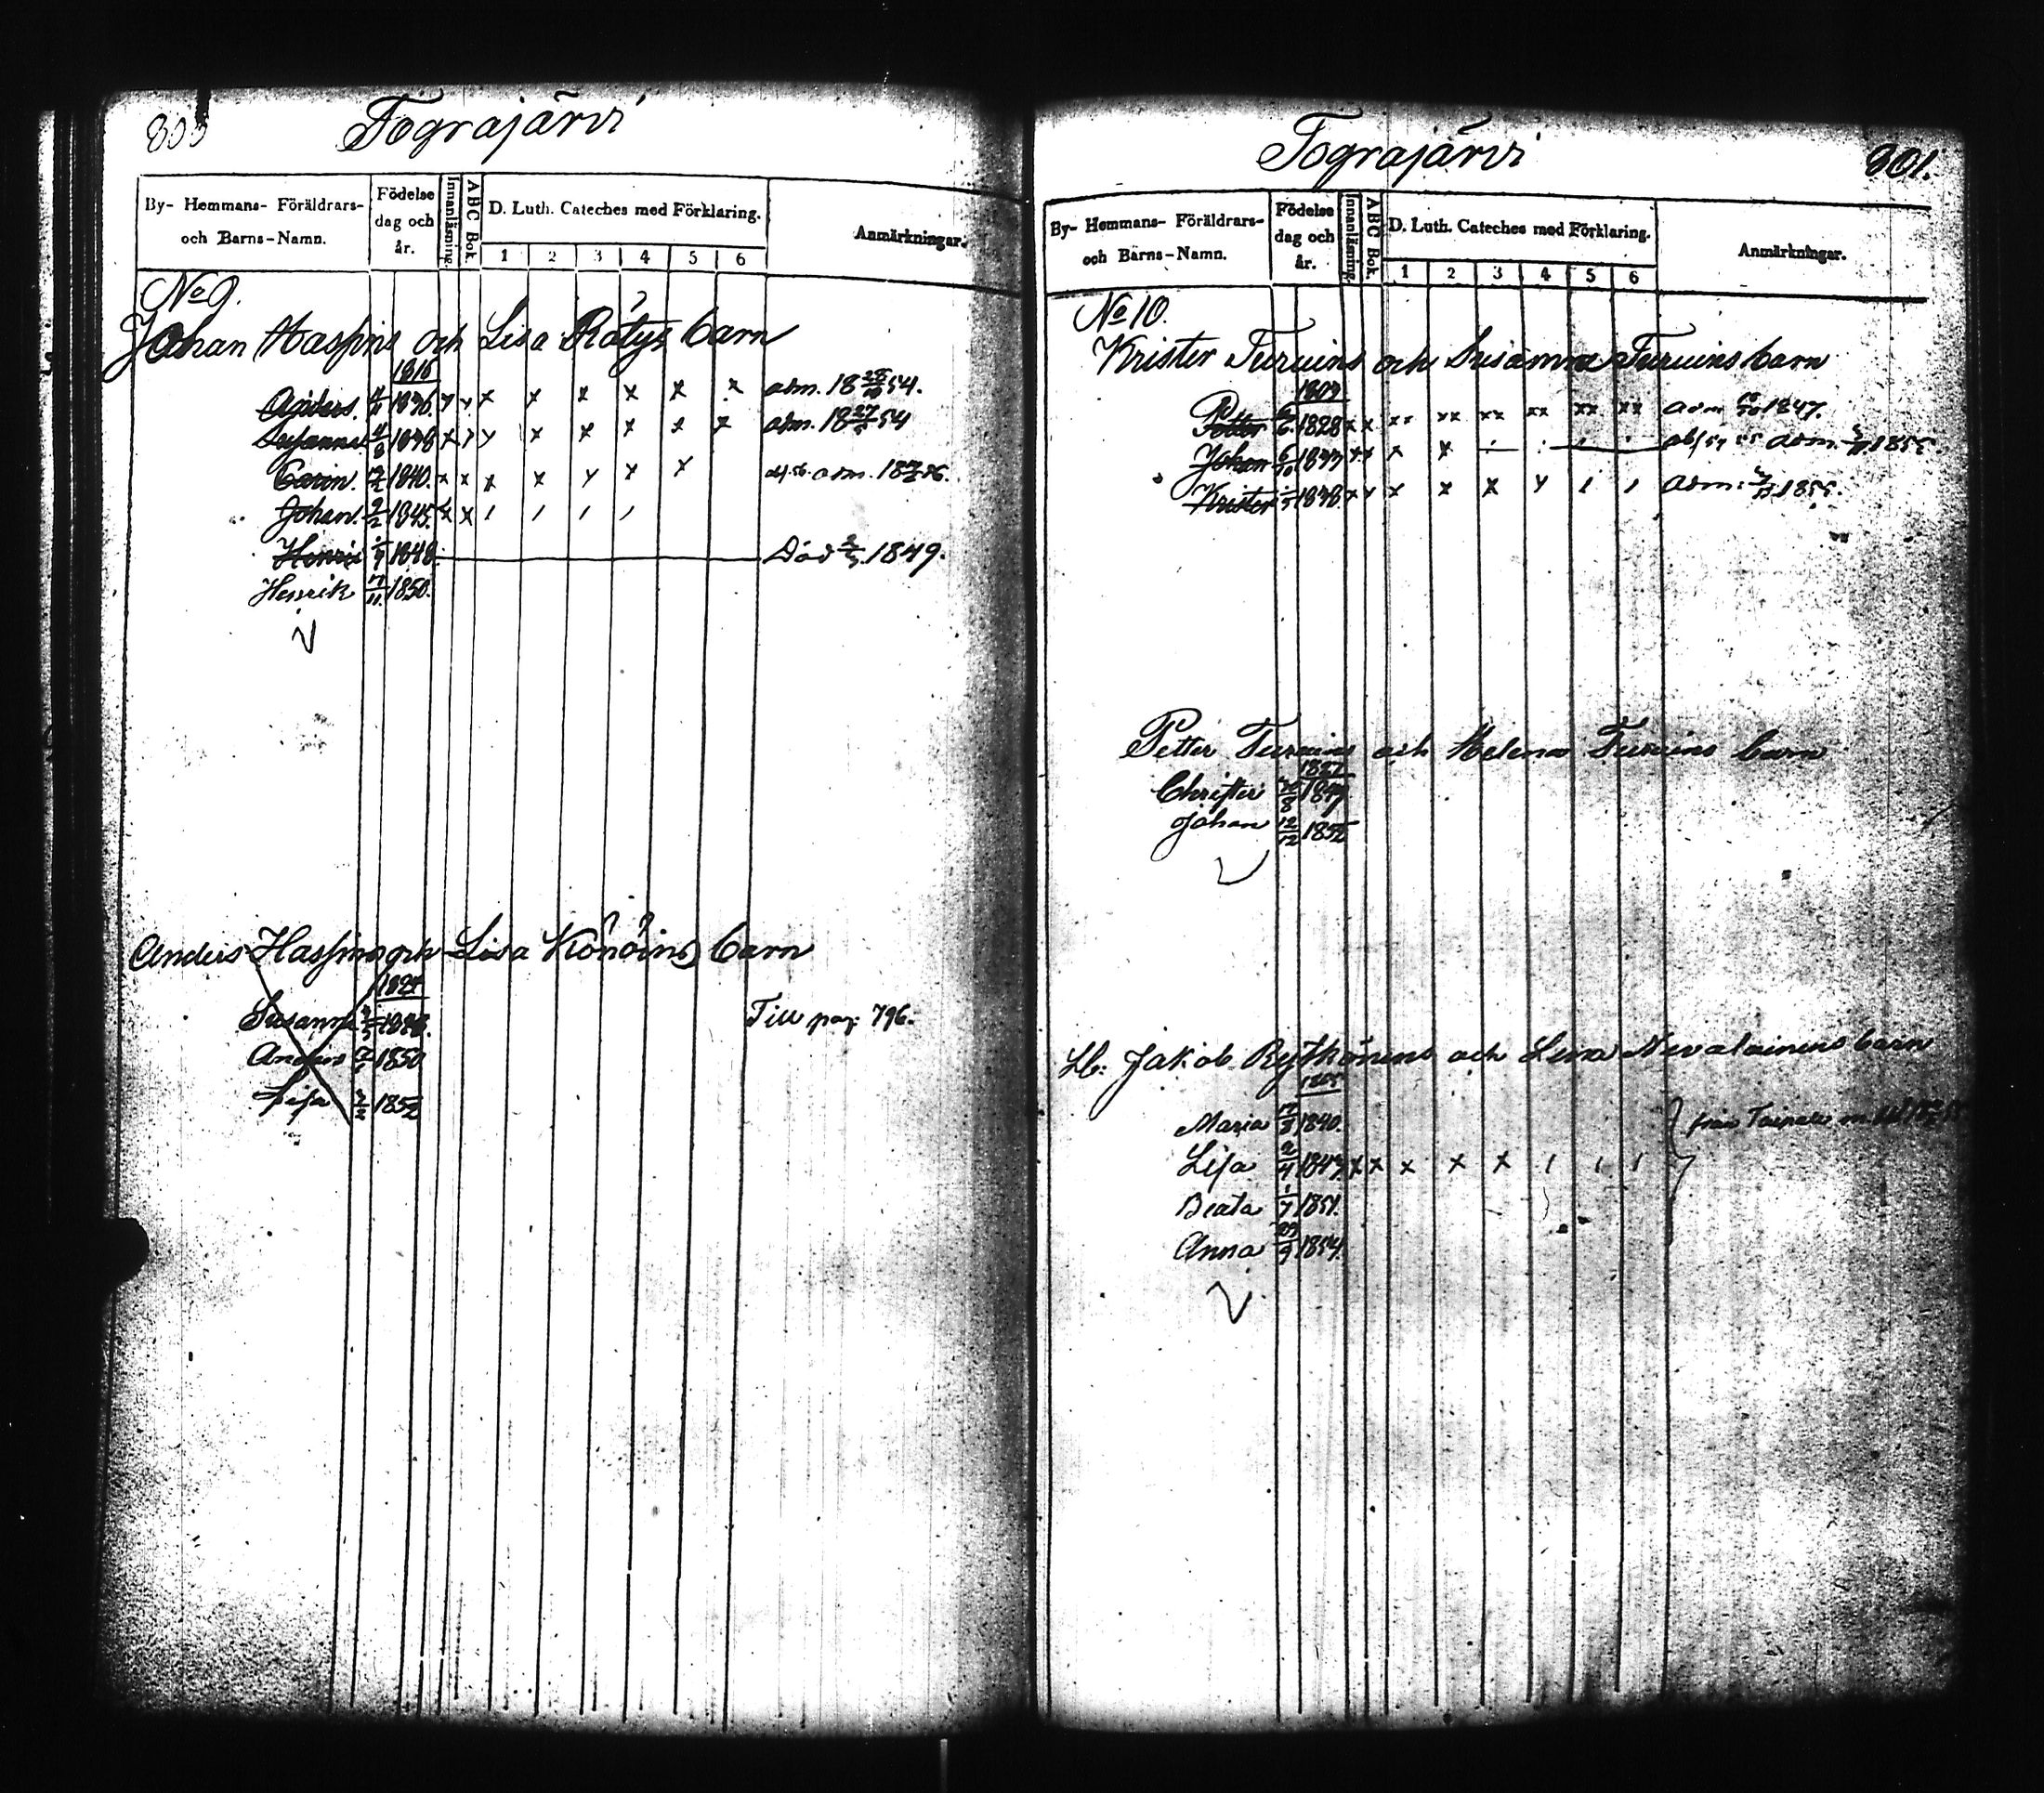 800
Tograjärvi
By- Hemmans- Föräldrars- och Barns-Namn.
Födelse dag och år.
Innanläsning.
ABC Bok.
D. Luth. Cateches med Förklaring.
1 2 3 4 5 6
Anmärkningar.
No 9.
Johan Hassins och Lisa Rätys barn
1816
Anders. 1836. x x x x x x x x adm. 18 54.
Susanna 1838 x x x x x x x adm. 18 27 54
Carin. 1840. x x x x x x x adm. 18 56.
Johan. 9/2 1845. x x 1 1 1 1
Henric 1848. Död 1849.
Henrik 11 1850.
Anders Hassins och Lisa Könöins barn
1824
Susanna 1848. Till pag: 796.
Anders 1850
Lisa 1852
Tograjärvi
801.
By- Hemmans- Föräldrars- och Barns-Namn.
Födelse dag och år.
Innanläsning.
ABC Bok.
D. Luth. Cateches med Förklaring.
1 2 3 4 5 6
Anmärkningar.
No 10.
Krister Turuins och Susanna Turuins barn
1809
Petter 1828 x x xx xx xx xx xx xx adm 1847.
Johan 6/10 x x x x adm. 1855.
Krister 1838 x x x x x x 1 1 adm: 1855.
Petter Turuins och Helena Turuins barn
1827
Christer 1849
Johan 12/12 1852
Lb: Jakob Rytkönens och Lena Nevalainens barn
Maria 1840. från Taipale
Lisa 2/4 1843 x x x x x 1 1 1
Beata 1/7 1851.
Anna 23/9 1854.